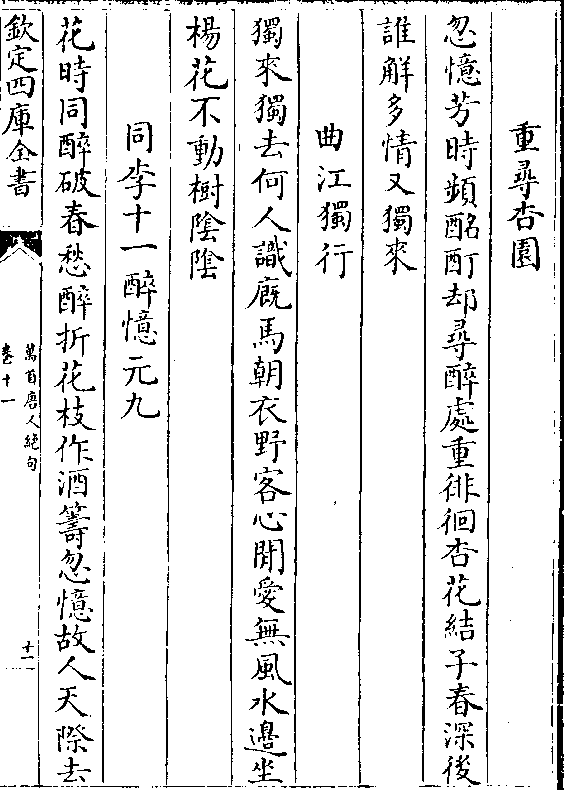 重尋杏園
忽憶芳時頻酩酊却尋醉處重徘徊杏花結子春深後
誰解多情又獨來
曲江獨行
獨來獨去何人識廐馬朝衣野客心閒愛無風水邊坐
楊花不動樹陰陰
同李十一醉憶元九
花時同醉破春愁醉折花枝作酒籌忽憶故人天際去
欽定四庫全書
萬首唐人絶句
卷十一
十一